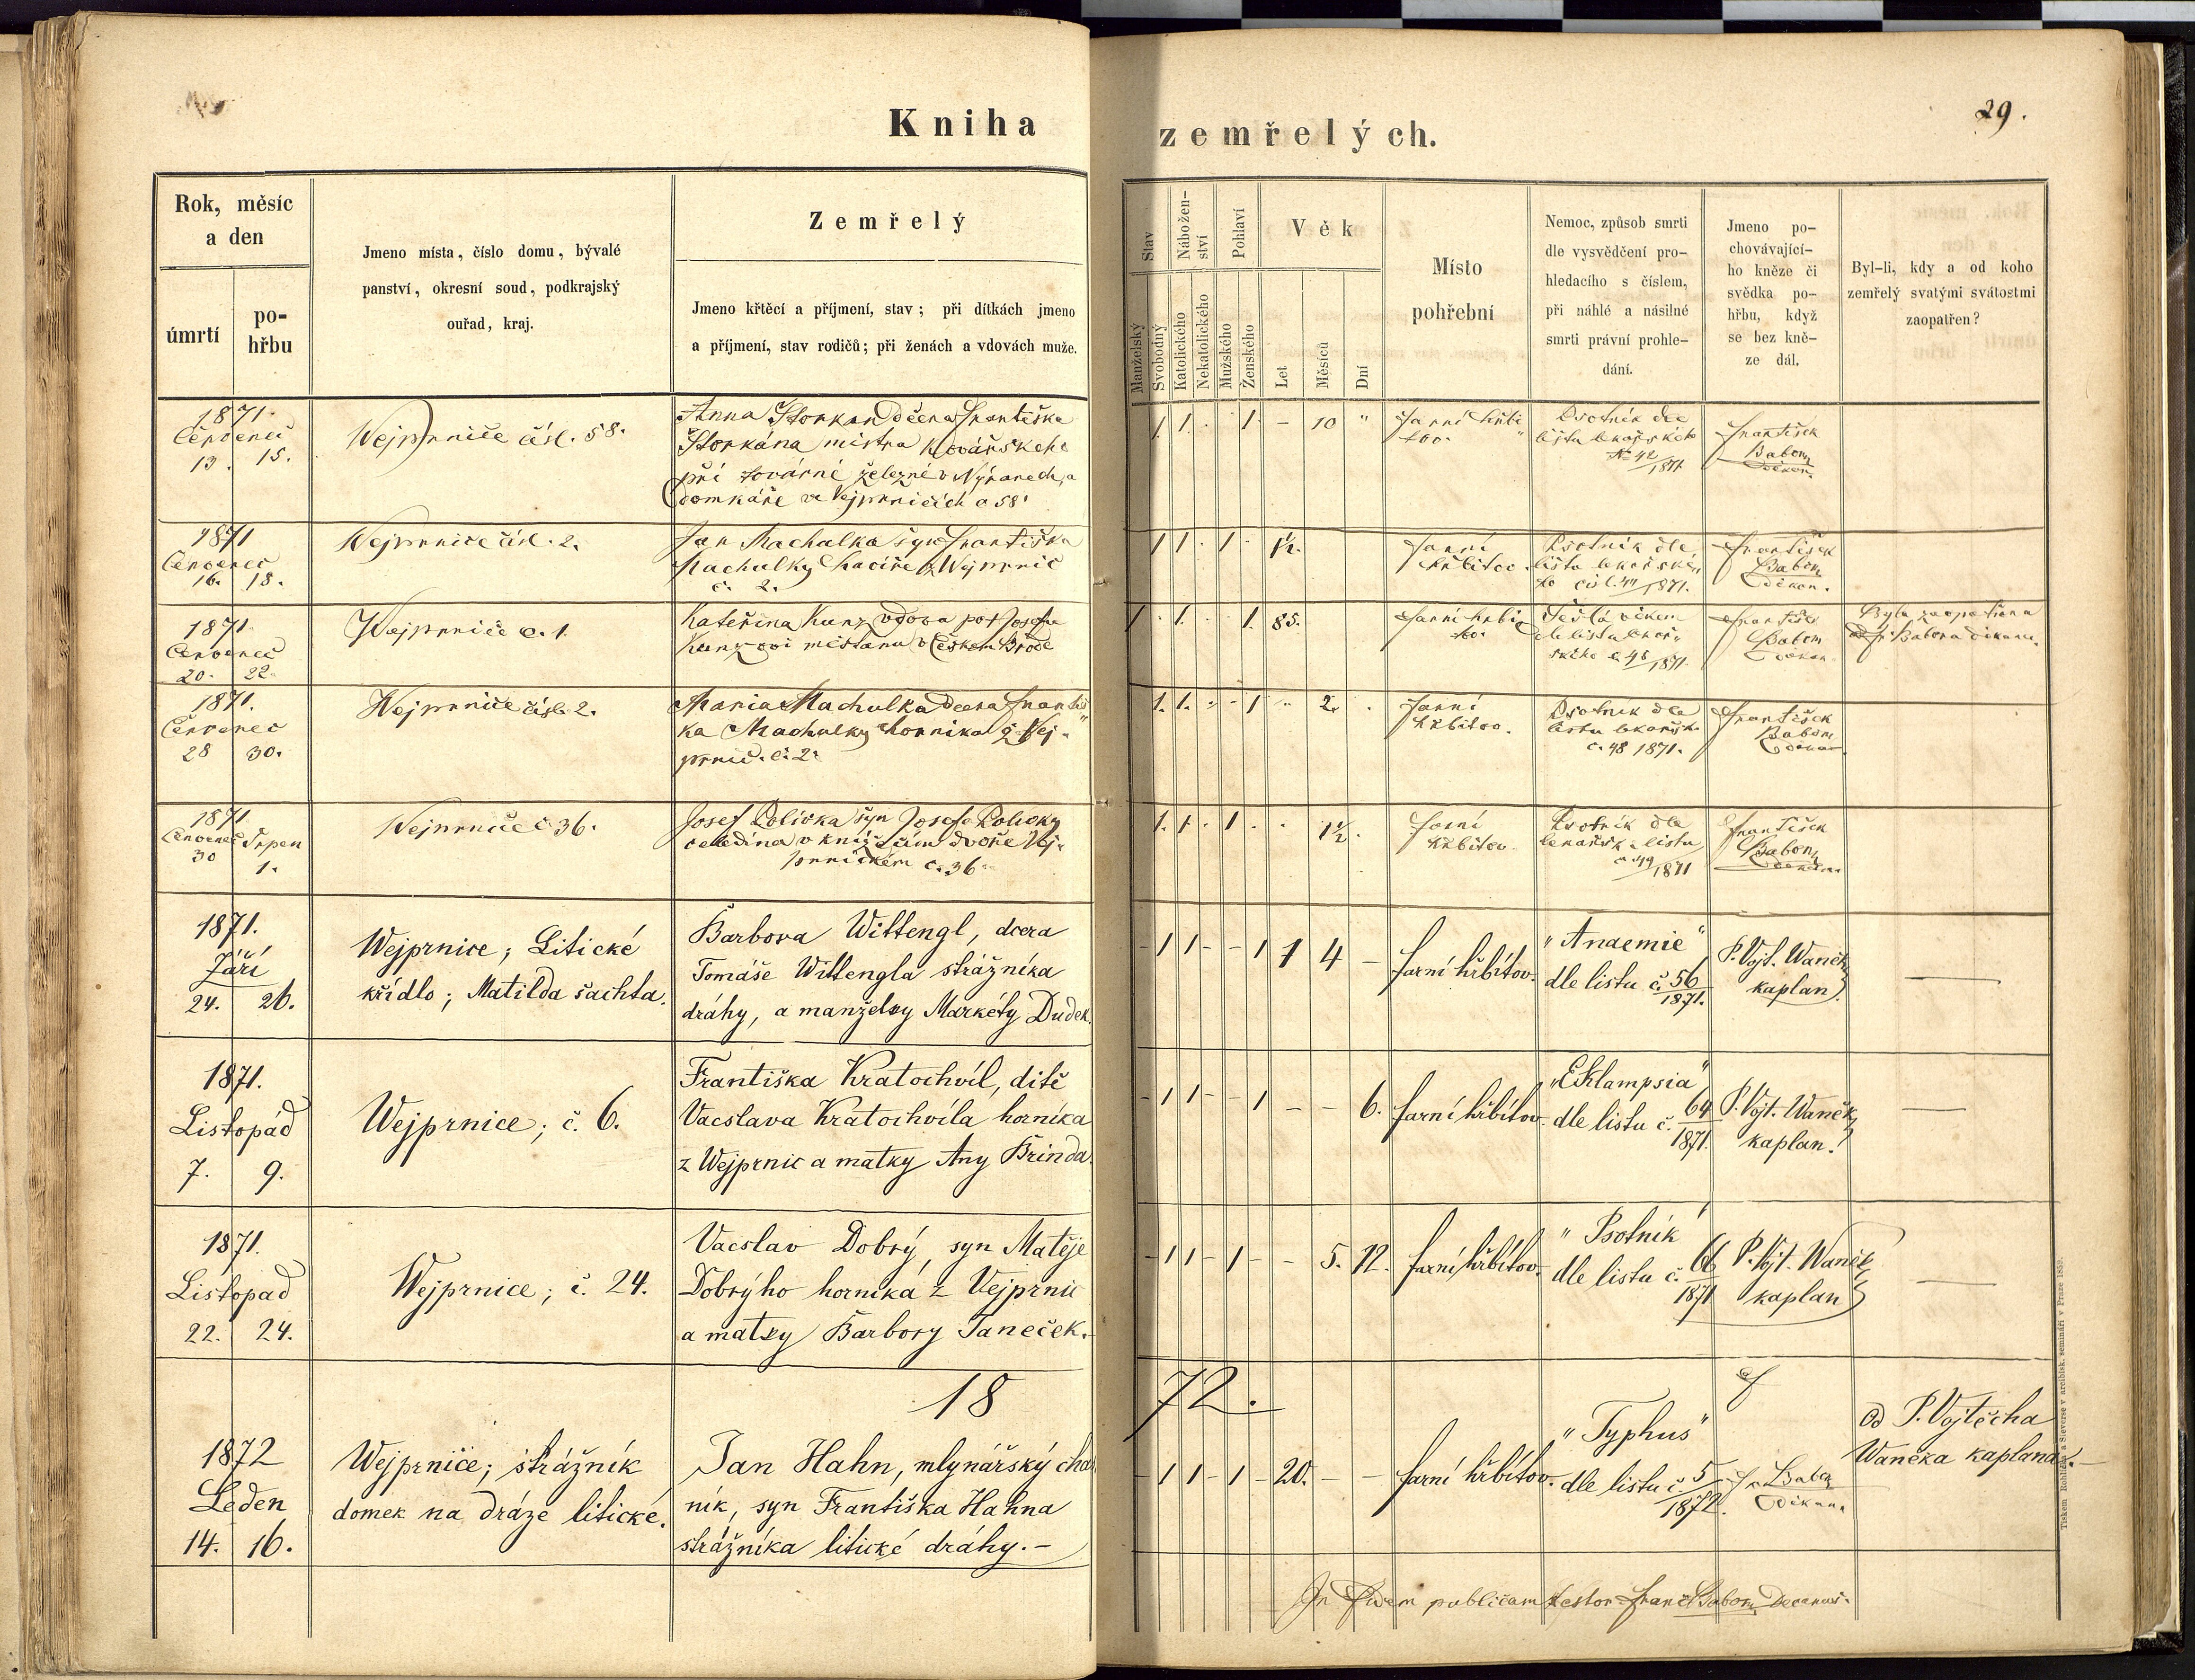 29.
Kniha zemřelých.
Rok, měsíc
a den
úmrtí
po-
hřbu
Jmeno místa, číslo domu, bývalé
panství, okresní soud, podkrajský
ouřad, kraj.
Zemřelý
Jmeno křtěcí a příjmení, stav; při dítkách jmeno
a příjmení, stav rodičů; při ženách a vdovách muže.
Stav
Manželský
Svobodný
Nábožen-
ství
Katolického
Nekatolického
Pohlaví
Mužského
Ženského
Věk
Let
Měsíců
Dní
Místo
pohřební
Nemoc, způsob smrti
dle vysvědčení pro-
hledacího s číslem,
při náhlé a násilné
smrti právní prohle-
dání.
Jmeno po-
chovávající-
ho kněze či
svědka po-
hřbu, když
se bez kně-
ze dál.
Byl-li, kdy a od koho
zemřelý svatými svátostmi
zaopatřen?
1871
Červenec
13. 15.
Wejprnice čísl. 58.
Anna Štorkan dcera Františka
Štorkána mistra kovářského
při továrně železné v Nýřanech, a
domkáře ve Vejprnicích č 58
1 1 1 - 10 "
farní hřbi
tov.
Psotník dle
listu lékařského
No 42/1871
František
Babor
děkan.
1871
Červenec
16. 18.
Wejprnice čísl. 2.
Jan Machulka syn Františka
Machulky havíře z Wejprnic
č. 2.
1 1 1 1½.
farní
hřbitov.
Psotník dle
listu lékařské
ho čís. 44/1871.
František
Babor
děkan.
1871
Červenec
20. 22.
Wejprnice č. 1
Kateřina Kunz vdova po Josefu
Kunzovi městanu v Českém Brodě
1 1 1 85.
farní hřbi
tov.
Sešlá věkem
dle listu lékař
ského č. 46/1871.
František
Babor
děkan
Byla zaopatřena
od Fr. Babora děkana.
1871.
Červenec
28 30.
Wejprnice čísl. 2.
Maria Machulka dcera Františ
ka Machulky horníka z Vej-
prnic. č. 2.
1. 1. 1 2.
farní
hřbitov.
Psotník dle
listu lékařsk.
č. 48 1871.
František
Babor
děkan
1871
Červenec Srpen
30 1.
Wejprnice č 36.
Josef Polívka syn Josefa Polívky
čeledína v knížecím dvoře Vej-
prnickém č. 36
1. 1. 1 1½
farní
hřbitov.
Psotník dle
lékařsk. listu
č 49/1871
František
Babor
děkan.
1871.
Září
24. 26.
Wejprnice; Litické
křídlo; Matilda šachta.
Barbora Wittengl, dcera
Tomáše Wittengla strážníka
dráhy, a manželky Markéty Dudek.
- 1 1 - - 1 1 4 -
farní hřbitov.
"Anaemie"
dle listu č. 56/1871.
P. Vojt. Waněk
kaplan.
—
1871.
Listopád
7. 9.
Wejprnice; č. 6.
Františka Kratochvíl, dítě
Vacslava Kratochvíla horníka
z Wejprnic a matky Any Brinda.
- 1 1 - - 1 - - 6.
farní hřbitov.
"Eklampsia"
dle listu č. 64/1871.
P. Vojt. Waněk,
kaplan.
—
1871.
Listopad
22. 24.
Wejprnice; č. 24.
Vacslav Dobrý, syn Matěje
Dobrýho horníka z Vejprnic
a matky Barbory Taneček.
- 1 1 - 1 - - 5. 12.
farní hřbitov.
"Psotník"
dle listu č. 66/1871
P. Vojt. Waněk,
kaplan
—
18 72.
1872
Leden
14. 16.
Wejprnice; strážník
domek na dráze litické.
Jan Hahn, mlynářský chas
ník, syn Františka Hahna
strážníka litické dráhy. -
- 1 1 - 1 - 20. - -
farní hřbitov.
"Typhus"
dle listu č. 5/1872.
Fr. Babor
děkan.
Od P. Vojtěcha
Waněka kaplana. -
In fidem publicam testor Franc Babor Decanus.